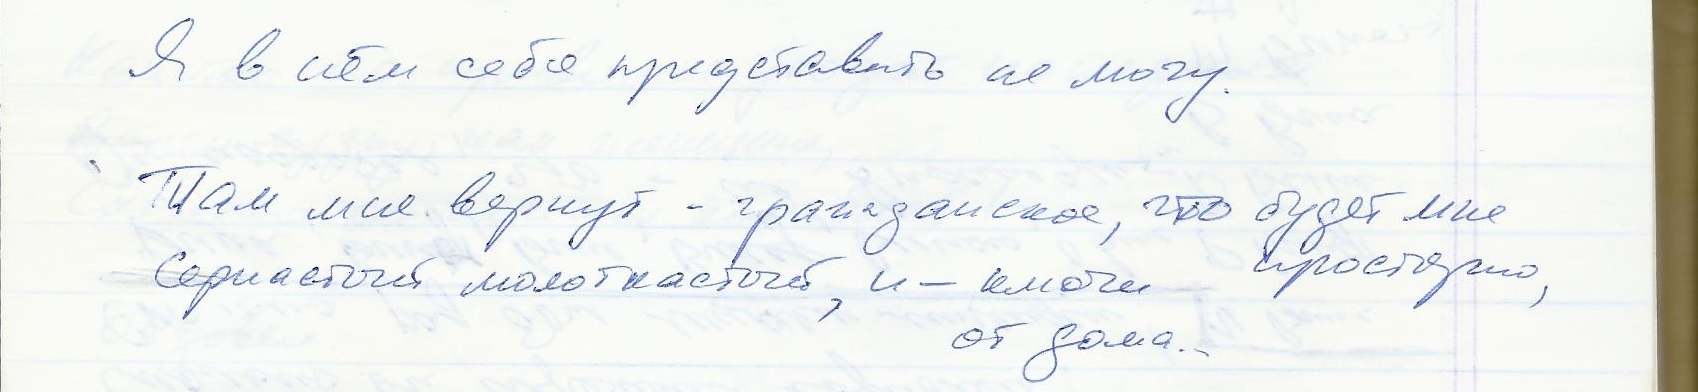 Я в нём себе представить не могу.
Там мне вернут - гражданское, что будет мне
просторно,
Серпастый молоткастый, и — ключи
от дома...